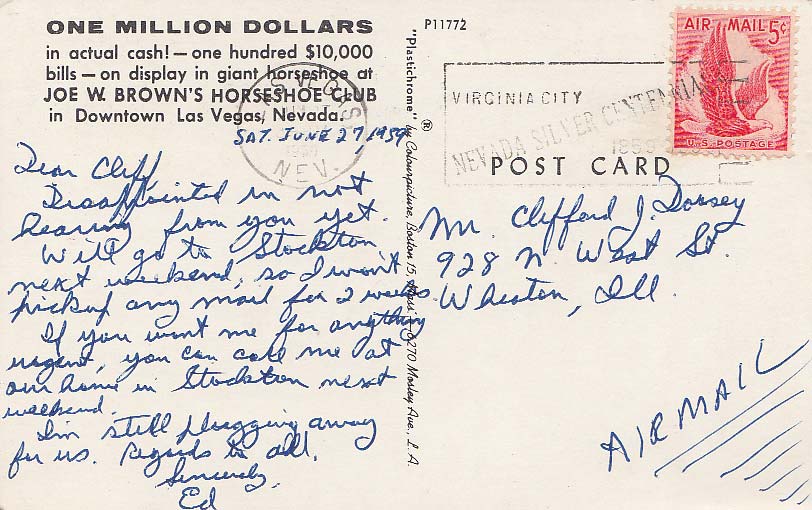 ONE MILLION DOLLARS
in actual cash! — one hundred $10,000
bills — on display in giant horseshoe at
JOE W. BROWN'S HORSESHOE CLUB
in Downtown Las Vegas, Nevada.
SAT. JUNE 27, 1959
Dear Cliff
Disappointed in not
hearing from you yet.
Will go to Stockton
next weekend, so I won't
pickup any mail for 2 weeks.
If you want me for anything
urgent, you can call me at
our home in Stockton next
weekend.
I'm still plugging away
for us. Regards to all.
Sincerely,
Ed
"Plastichrome" ® by Colourpicture, Boston 15, Mass. - 6270 Mosley Ave., L. A.
P11772
LAS VEGAS
NEV.
VIRGINIA CITY
NEVADA SILVER CENTENNIAL
1859
AIR MAIL 5¢
U.S. POSTAGE
POST CARD
Mr. Clifford J. Dorsey
928 N West St.
Wheaton, Ill.
AIRMAIL